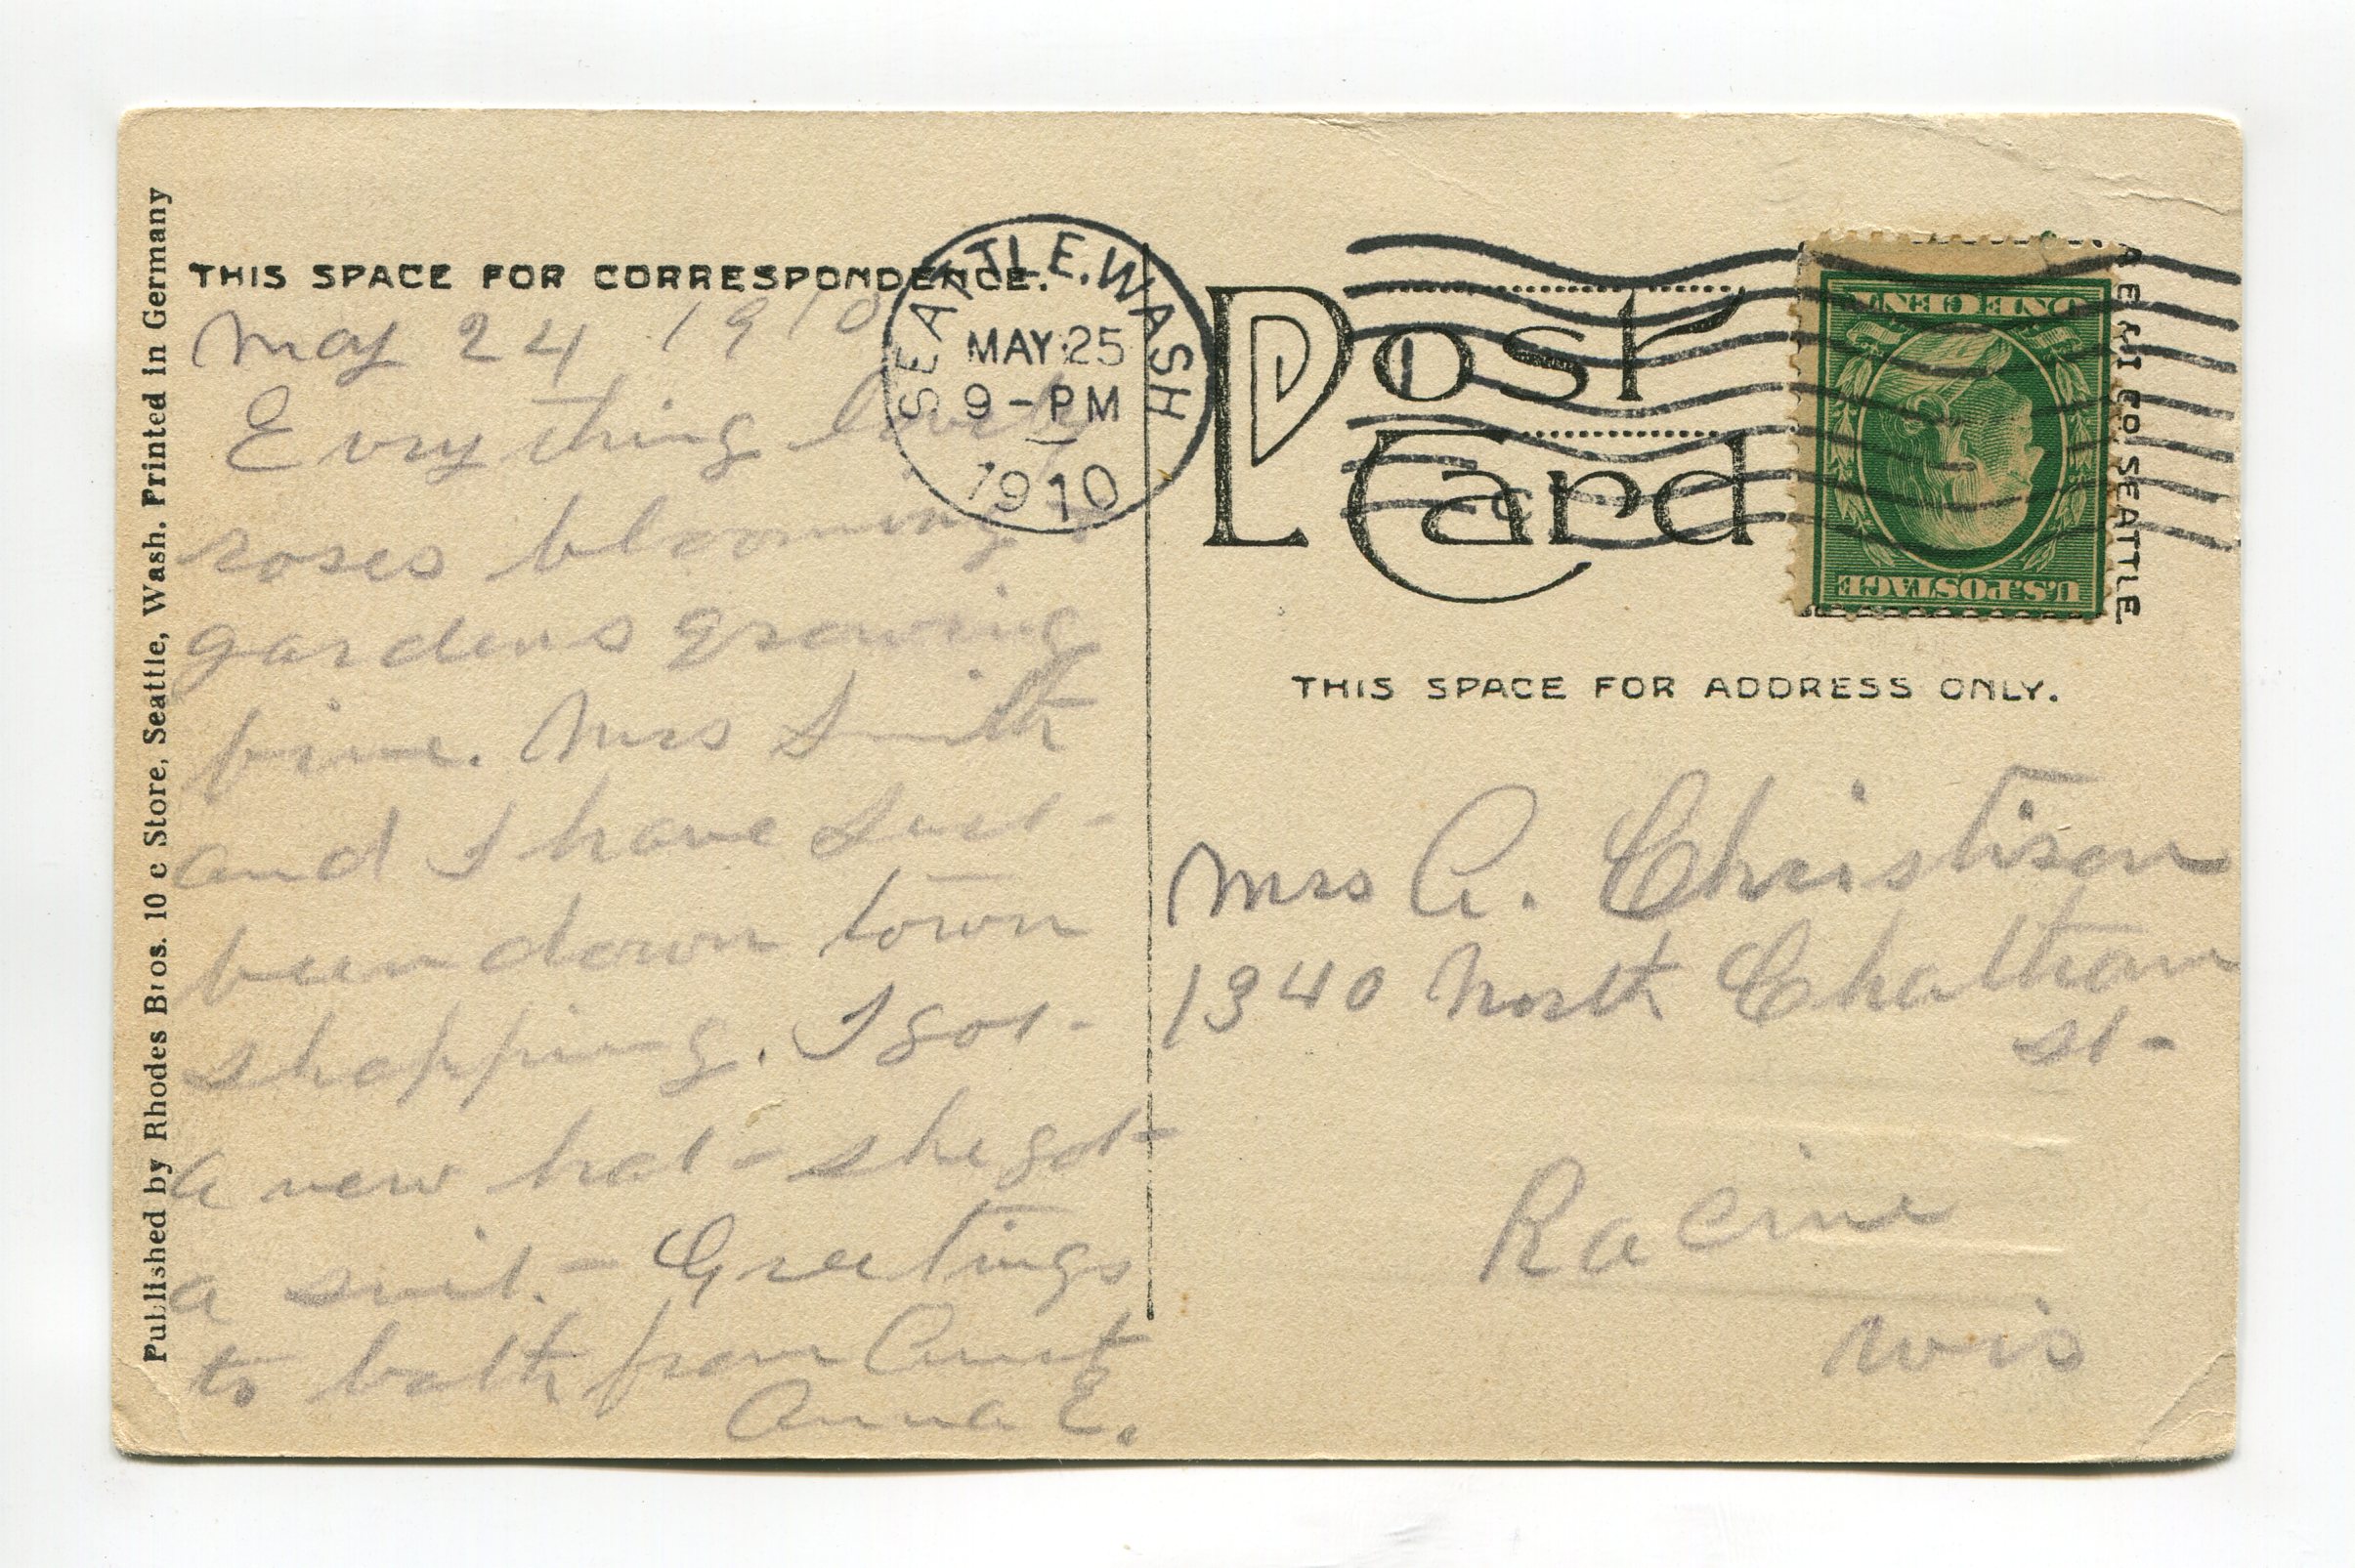 Published by Rhodes Bros. 10 c Store, Seattle, Wash. Printed in Germany
THIS SPACE FOR CORRESPONDENCE.
May 24 1910
Evrything lovely
roses blooming &
gardens growing
fine. Mrs Smith
and I have Just
been down town
shopping. I got
a new hat - she got
a suit. - Greetings
to both from Aunt
Anna E.
SEATTLE, WASH
MAY 25
9 - PM
1910
Post
Card
ONE CENT
U.S. POSTAGE
CO SEATTLE
THIS SPACE FOR ADDRESS ONLY.
Mrs A. Christison
1340 North Chatham
st -
Racine
Wis